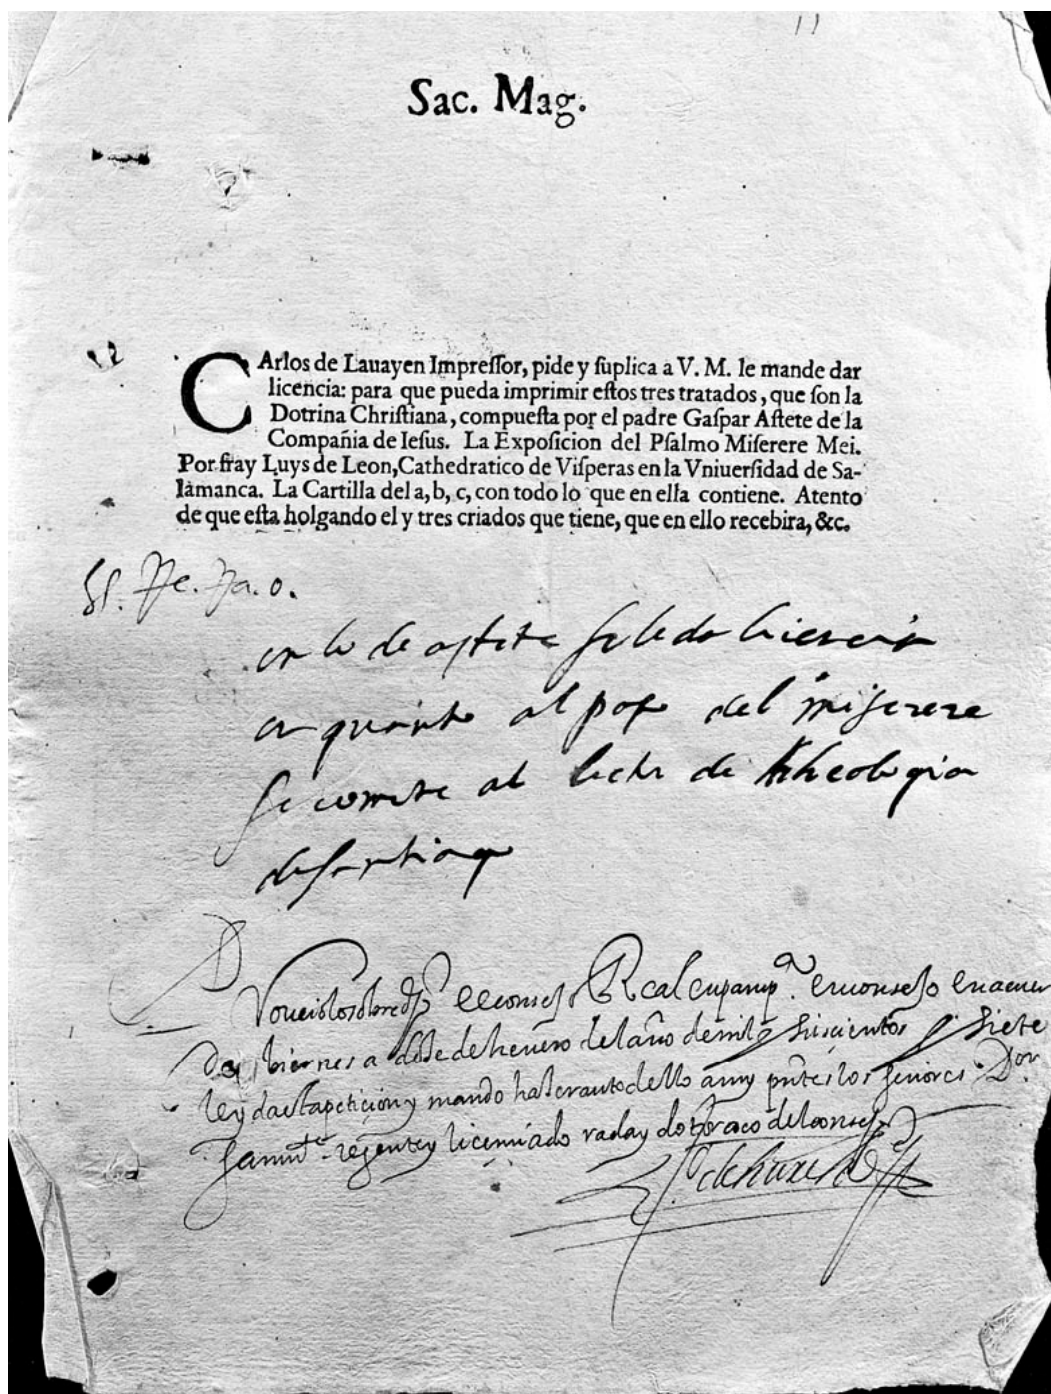 11
Sac. Mag.
CArlos de Lauayen Impreſſor, pide y ſuplica a V. M. le mande dar
licencia: para que pueda imprimir eſtos tres tratados, que ſon la
Dotrina Chriſtiana, compueſta por el padre Gaſpar Aſtete de la
Compañia de Ieſus. La Expoſicion del Pſalmo Miſerere Mei.
Por fray Luys de Leon, Cathedratico de Viſperas en la Vniuerſidad de Sa-
lamanca. La Cartilla del a, b, c, con todo lo que en ella contiene. Atento
de que eſta holgando el y tres criados que tiene, que en ello recebira, &c.
en lo de astete se le da licencia
en quanto al del miserere
se comete al letor de theologia
de santiago
Proueio lo sobredho el consejo Real en pamp.ᵃ en consejo en acuer
do biernes a doze de henero del año de mil y siscientos y siete
leyda esta peticion y mando hazer auto dello a my pntes los señores Don
regente y licenciado rada y dotor del consejo